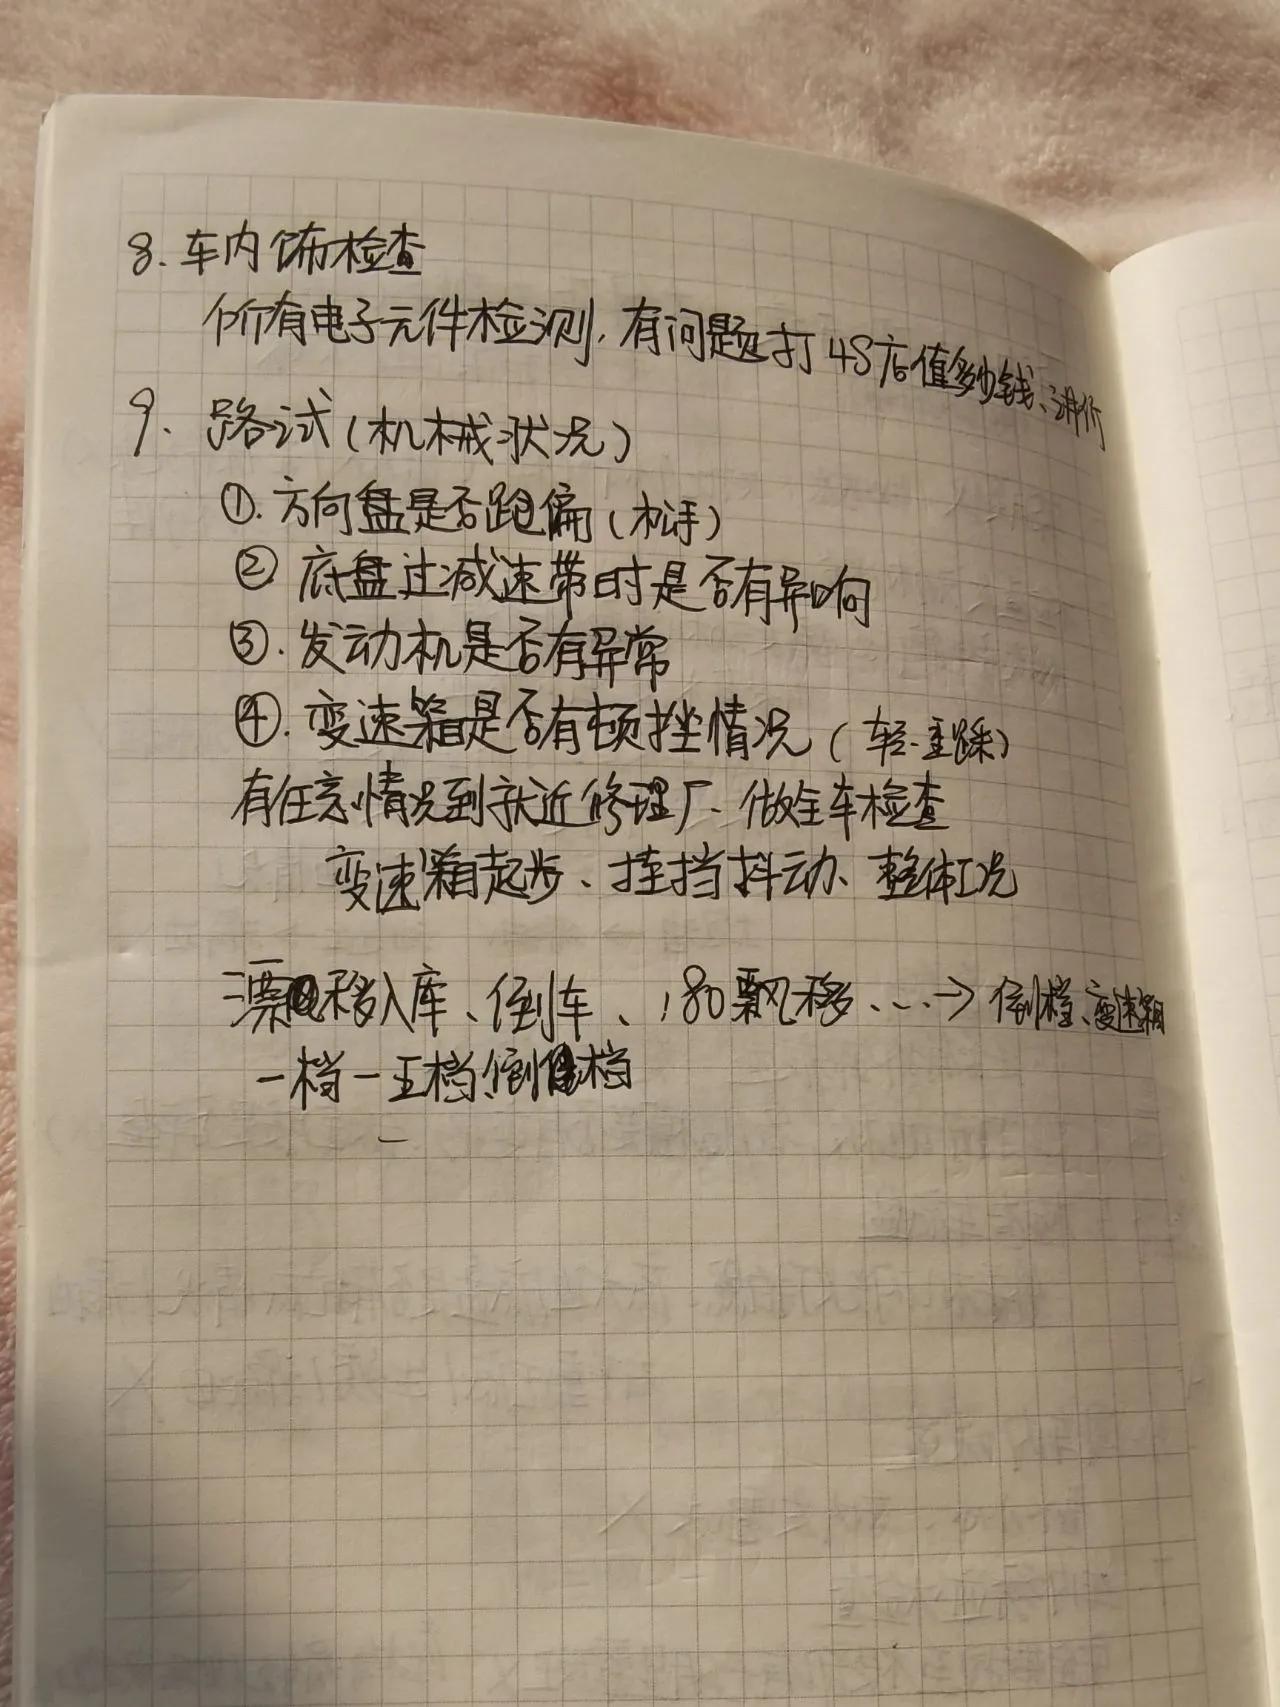 8. 车内饰检查
所有电子元件检测, 有问题打4S店值多少钱、讲价
9. 路试(机械状况)
①. 方向盘是否跑偏(松手)
② 底盘过减速带时是否有异响
③. 发动机是否有异常
④. 变速箱是否有顿挫情况(轻.重踩)
有任意情况到就近修理厂. 做全车检查
变速箱起步、挂挡抖动、整体工况
漂移入库、倒车、180飘移、...→倒档、变速箱
一档一五档、倒档